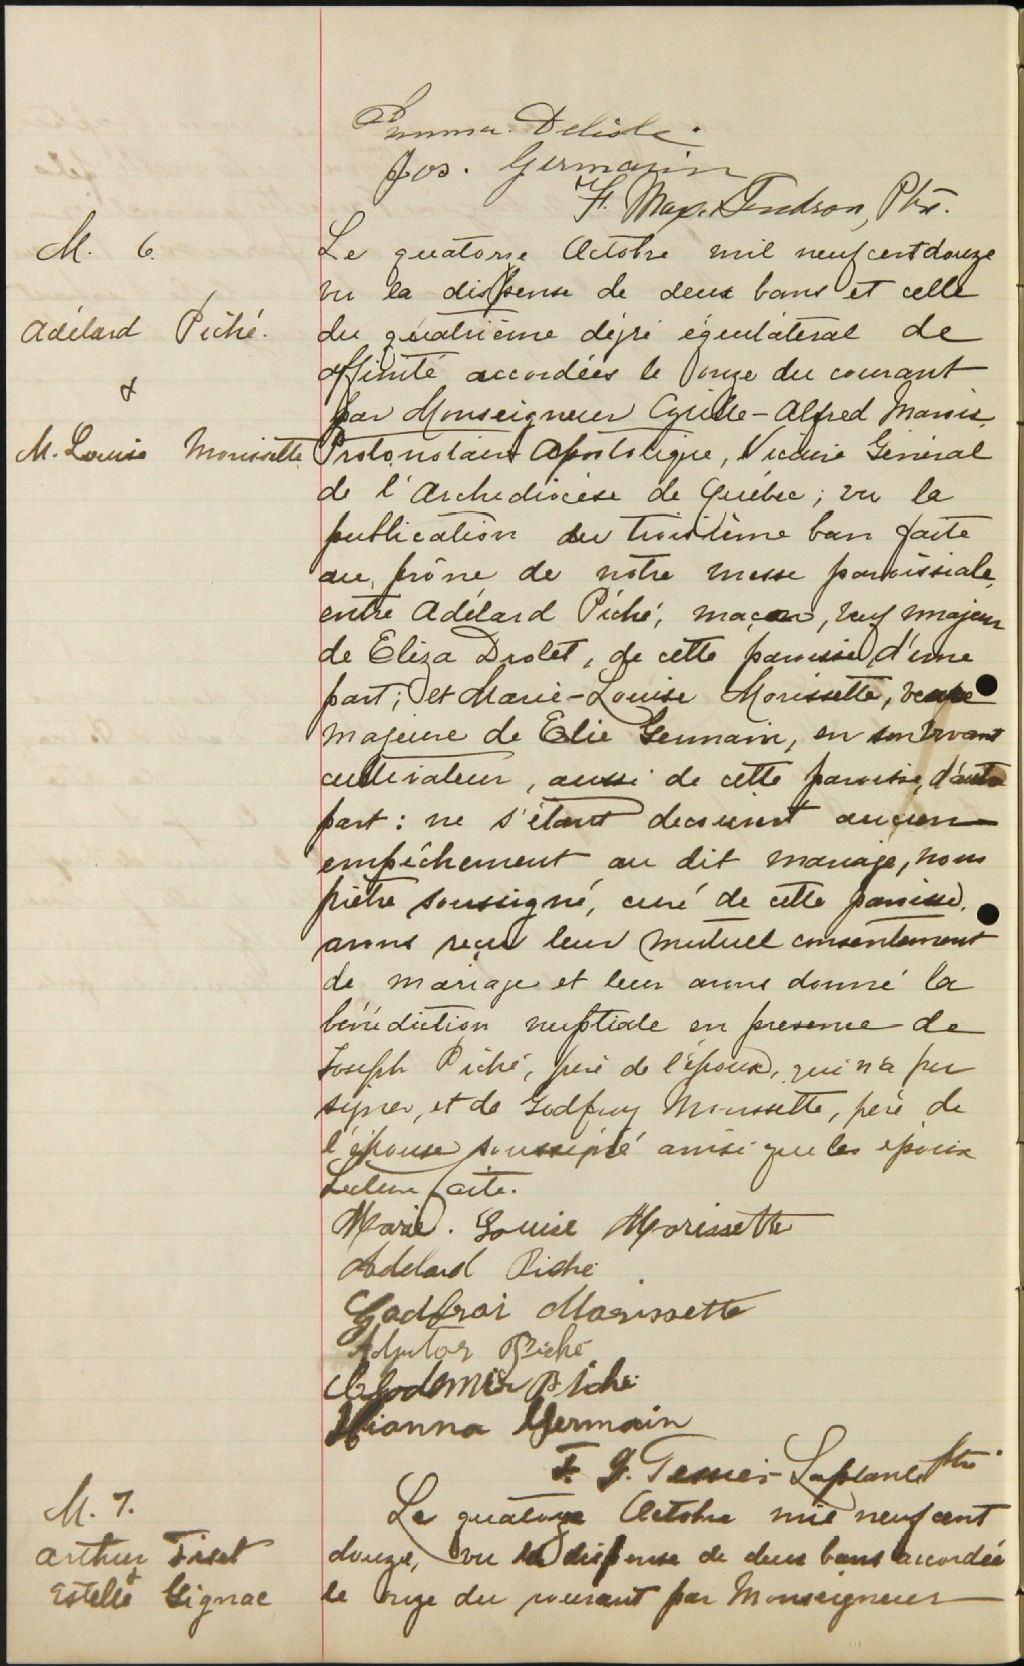 Emma Delisle.
Jos. Germain
F. Max. Ptre.
M. 6.
Adélard Piché.
&
M. Louise Morissette
Le quatorze Octobre mil neuf cent douze
vu la dispense de deux bans et celle
du quatrième dégré équilatéral de
affinité accordées le onze du courant
par Monseigneur Cyrille-Alfred Marois,
Protonotaire Apostolique, Vicaire Général
de l'Archidiocèse de Québec; vu la
publication du troisième ban faite
au prône de notre messe paroissiale,
entre Adélard Piché, maçon, veuf majeur
de Eliza Drolet, de cette paroisse, d'une
part; et Marie-Louise Morissette, veuve
majeure de Elie Germain, en son vivant
cultivateur, aussi de cette paroisse, d'autre
part: ne s'étant découvert aucun
empêchement au dit mariage, nous
prêtre soussigné, curé de cette paroisse,
avons reçu leur mutuel consentement
de mariage et leur avons donné la
bénédiction nuptiale en présence de
Joseph Piché, père de l'époux, qui n'a pu
signer, et de Godfroy Morissette, père de
l'épouse soussigné ainsi que les époux
Lecture faite.
Marie. Louise Morissette
Adelard Piché
Godfroi Morissette
Adjutor Piché
Clodomir Piché
Germain
F. G. Tessier Laplante Ptre
M. 7.
Arthur Fiset
&
Estelle Gignac
Le quatorze Octobre mil neuf cent
douze, vu la dispense de deux bans accordée
le onze du courant par Monseigneur